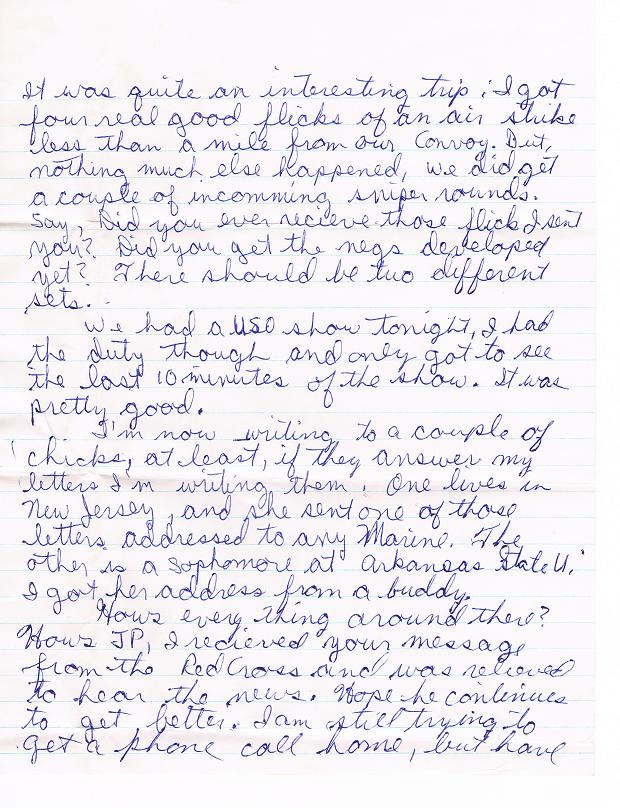 It was quite an interesting trip; I got
four real good flicks of an air strike
less than a mile from our Convoy. But,
nothing much else happened, we did get
a couple of incomming sniper rounds.
Say, Did you ever recieve those flick I sent
you? Did you get the negs developed
yet? There should be two different
sets.
We had a USO show tonight, I had
the duty though and only got to see
the last 10 minutes of the show. It was
pretty good.
I'm now writing to a couple of
chicks, at least, if they answer my
letters I'm writing them. One lives in
New Jersey, and she sent one of those
letters addressed to any Marine. The
other is a sophomore at Arkansas State U.
I got her address from a buddy.
Hows every thing around there?
Hows JP, I recieved your message
from the Red Cross and was relieved
to hear the news. Hope he continues
to get better. I am still trying to
get a phone call home, but have